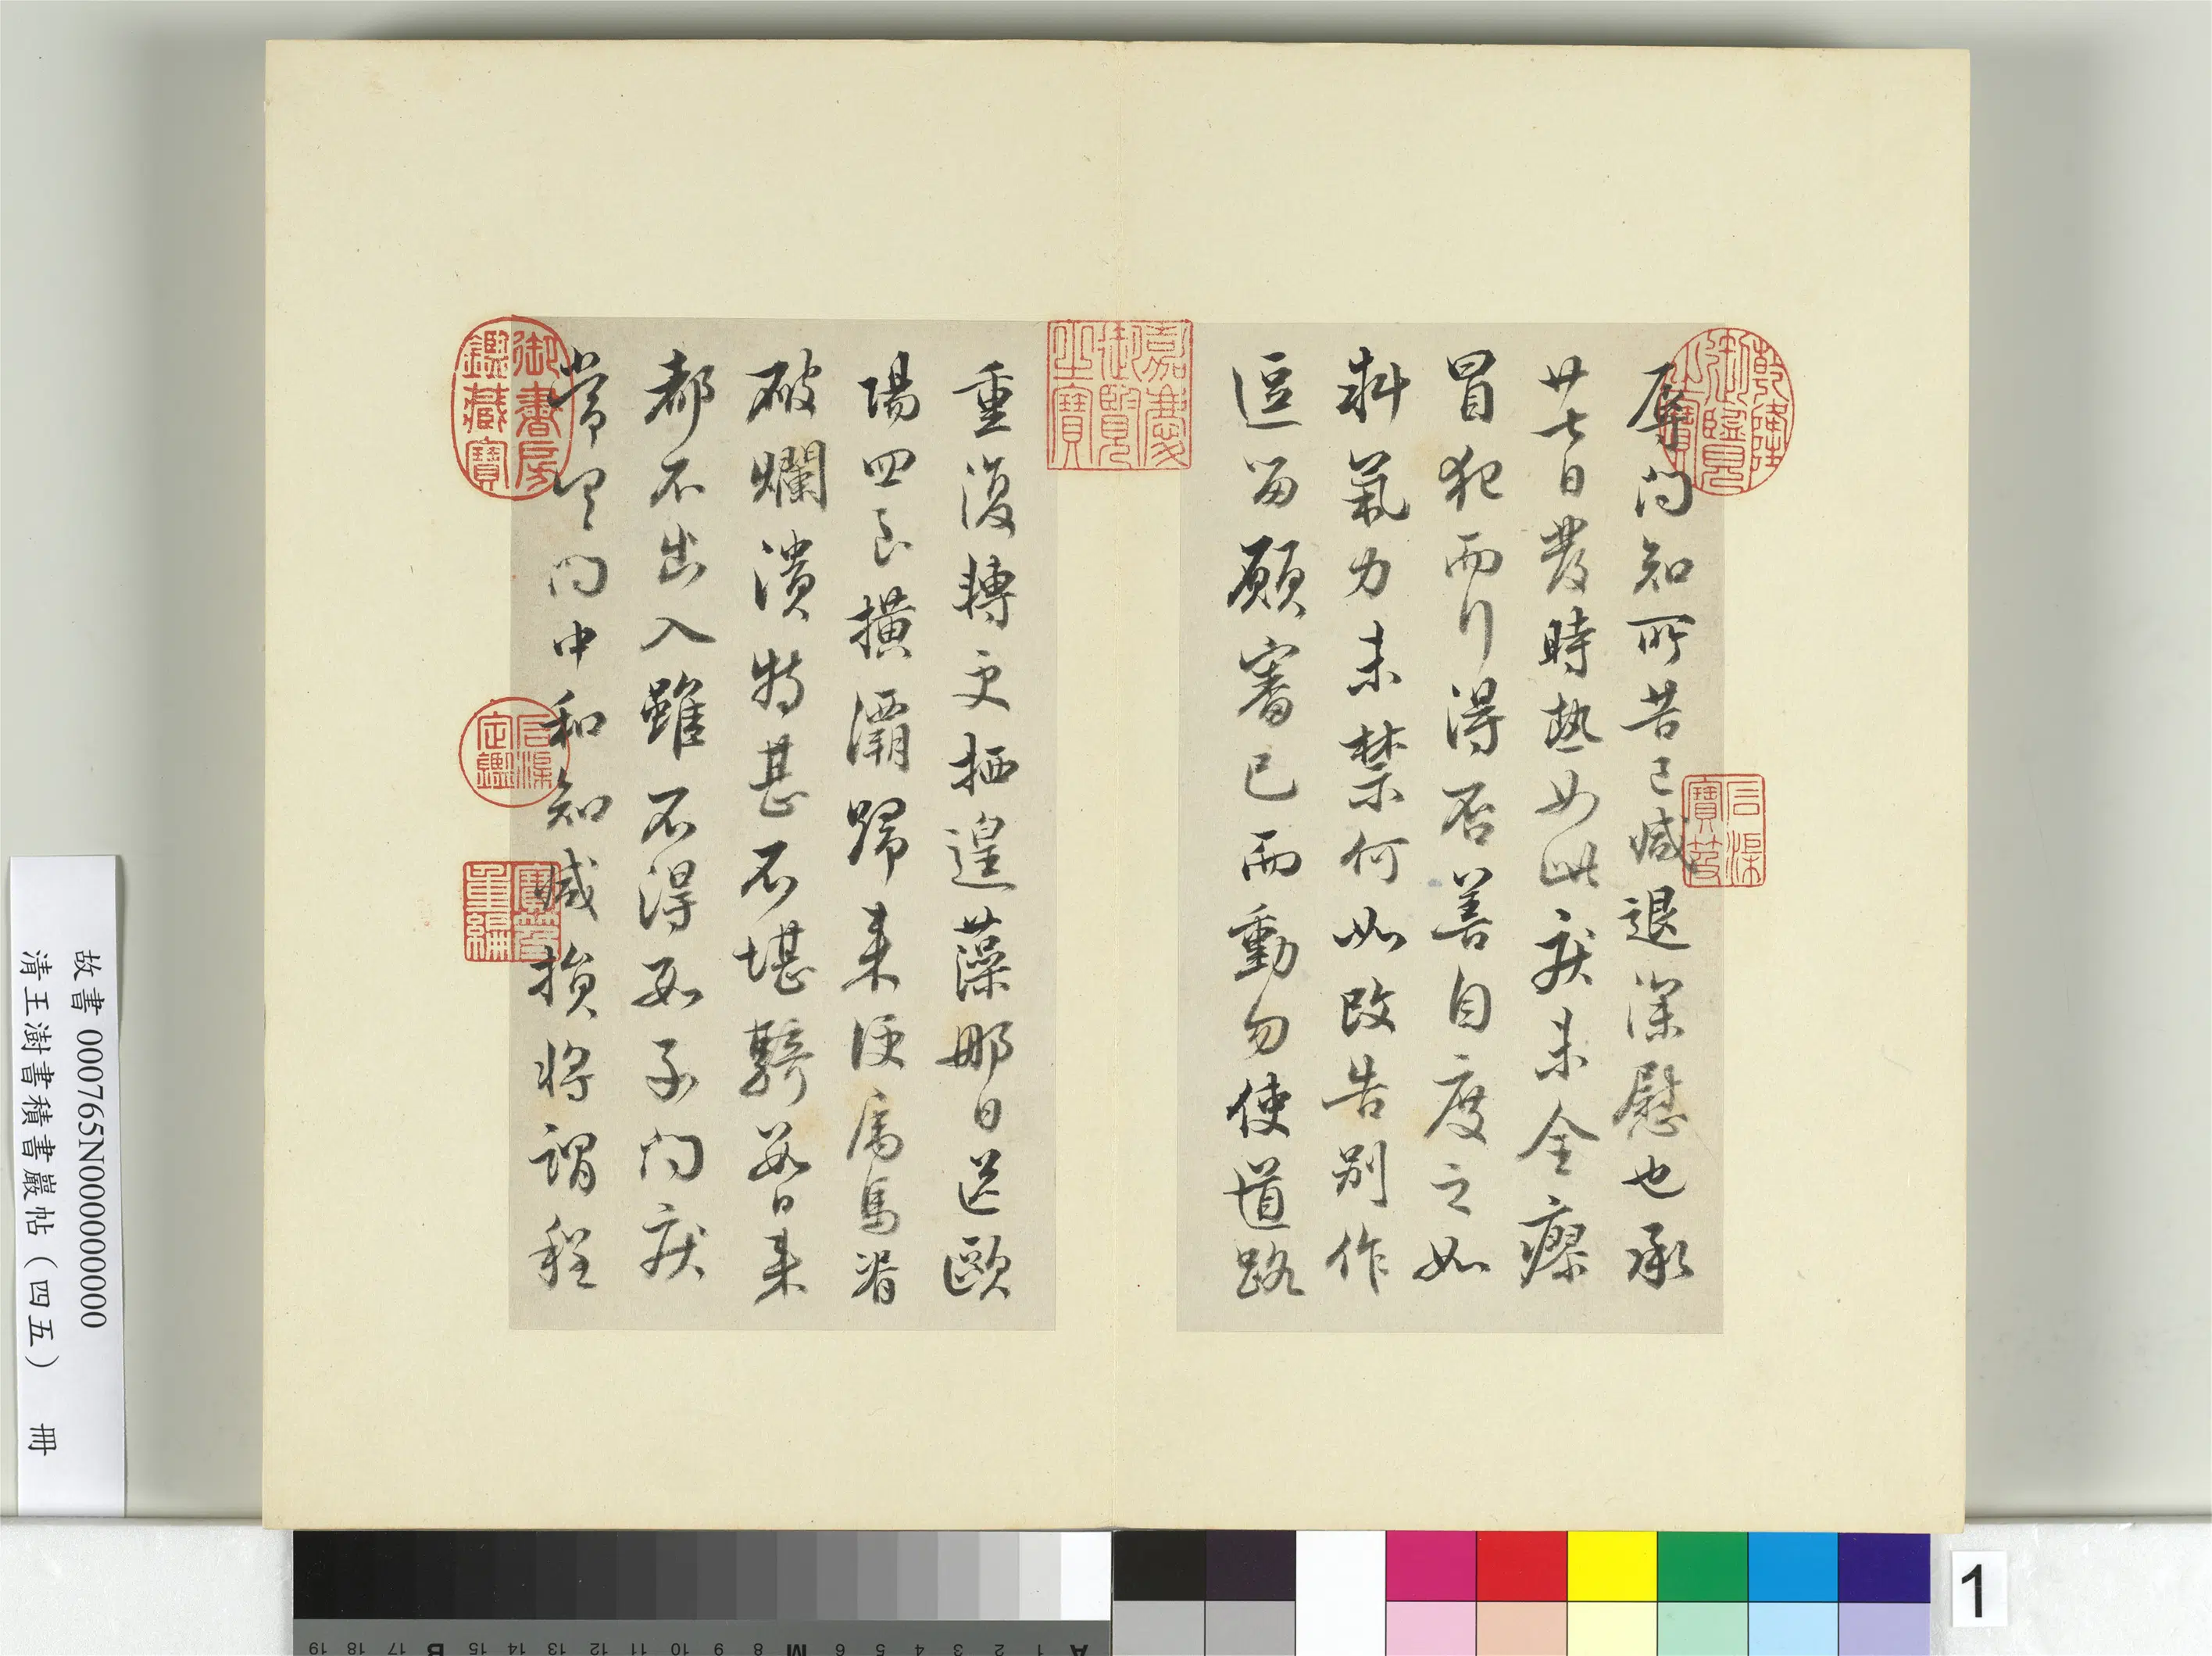 辱問知所苦已減退深慰也承
廿七日發時熱如此疾未全瘳
冒犯而行得否善自度之如
料氣力未禁何如改告別作
逗留願審已而動勿使道路
重復轉更栖遑藻那日送歐
陽四良橫灞歸來便屬馬脊
破爛潰特甚不堪騎數日來
都不出入雖不得數子問疾
常令問中和知減損將謂程
乾隆御覽之寶
嘉慶御覽之寶
石渠寶笈
御書房鑑藏寶
石渠定鑑
寶笈重編
故書 000765N000000000
清王澍書積書巖帖（四五） 冊
1
A 1 2 3 4 5 6 M 8 9 10 11 12 13 14 15 B 17 18 19